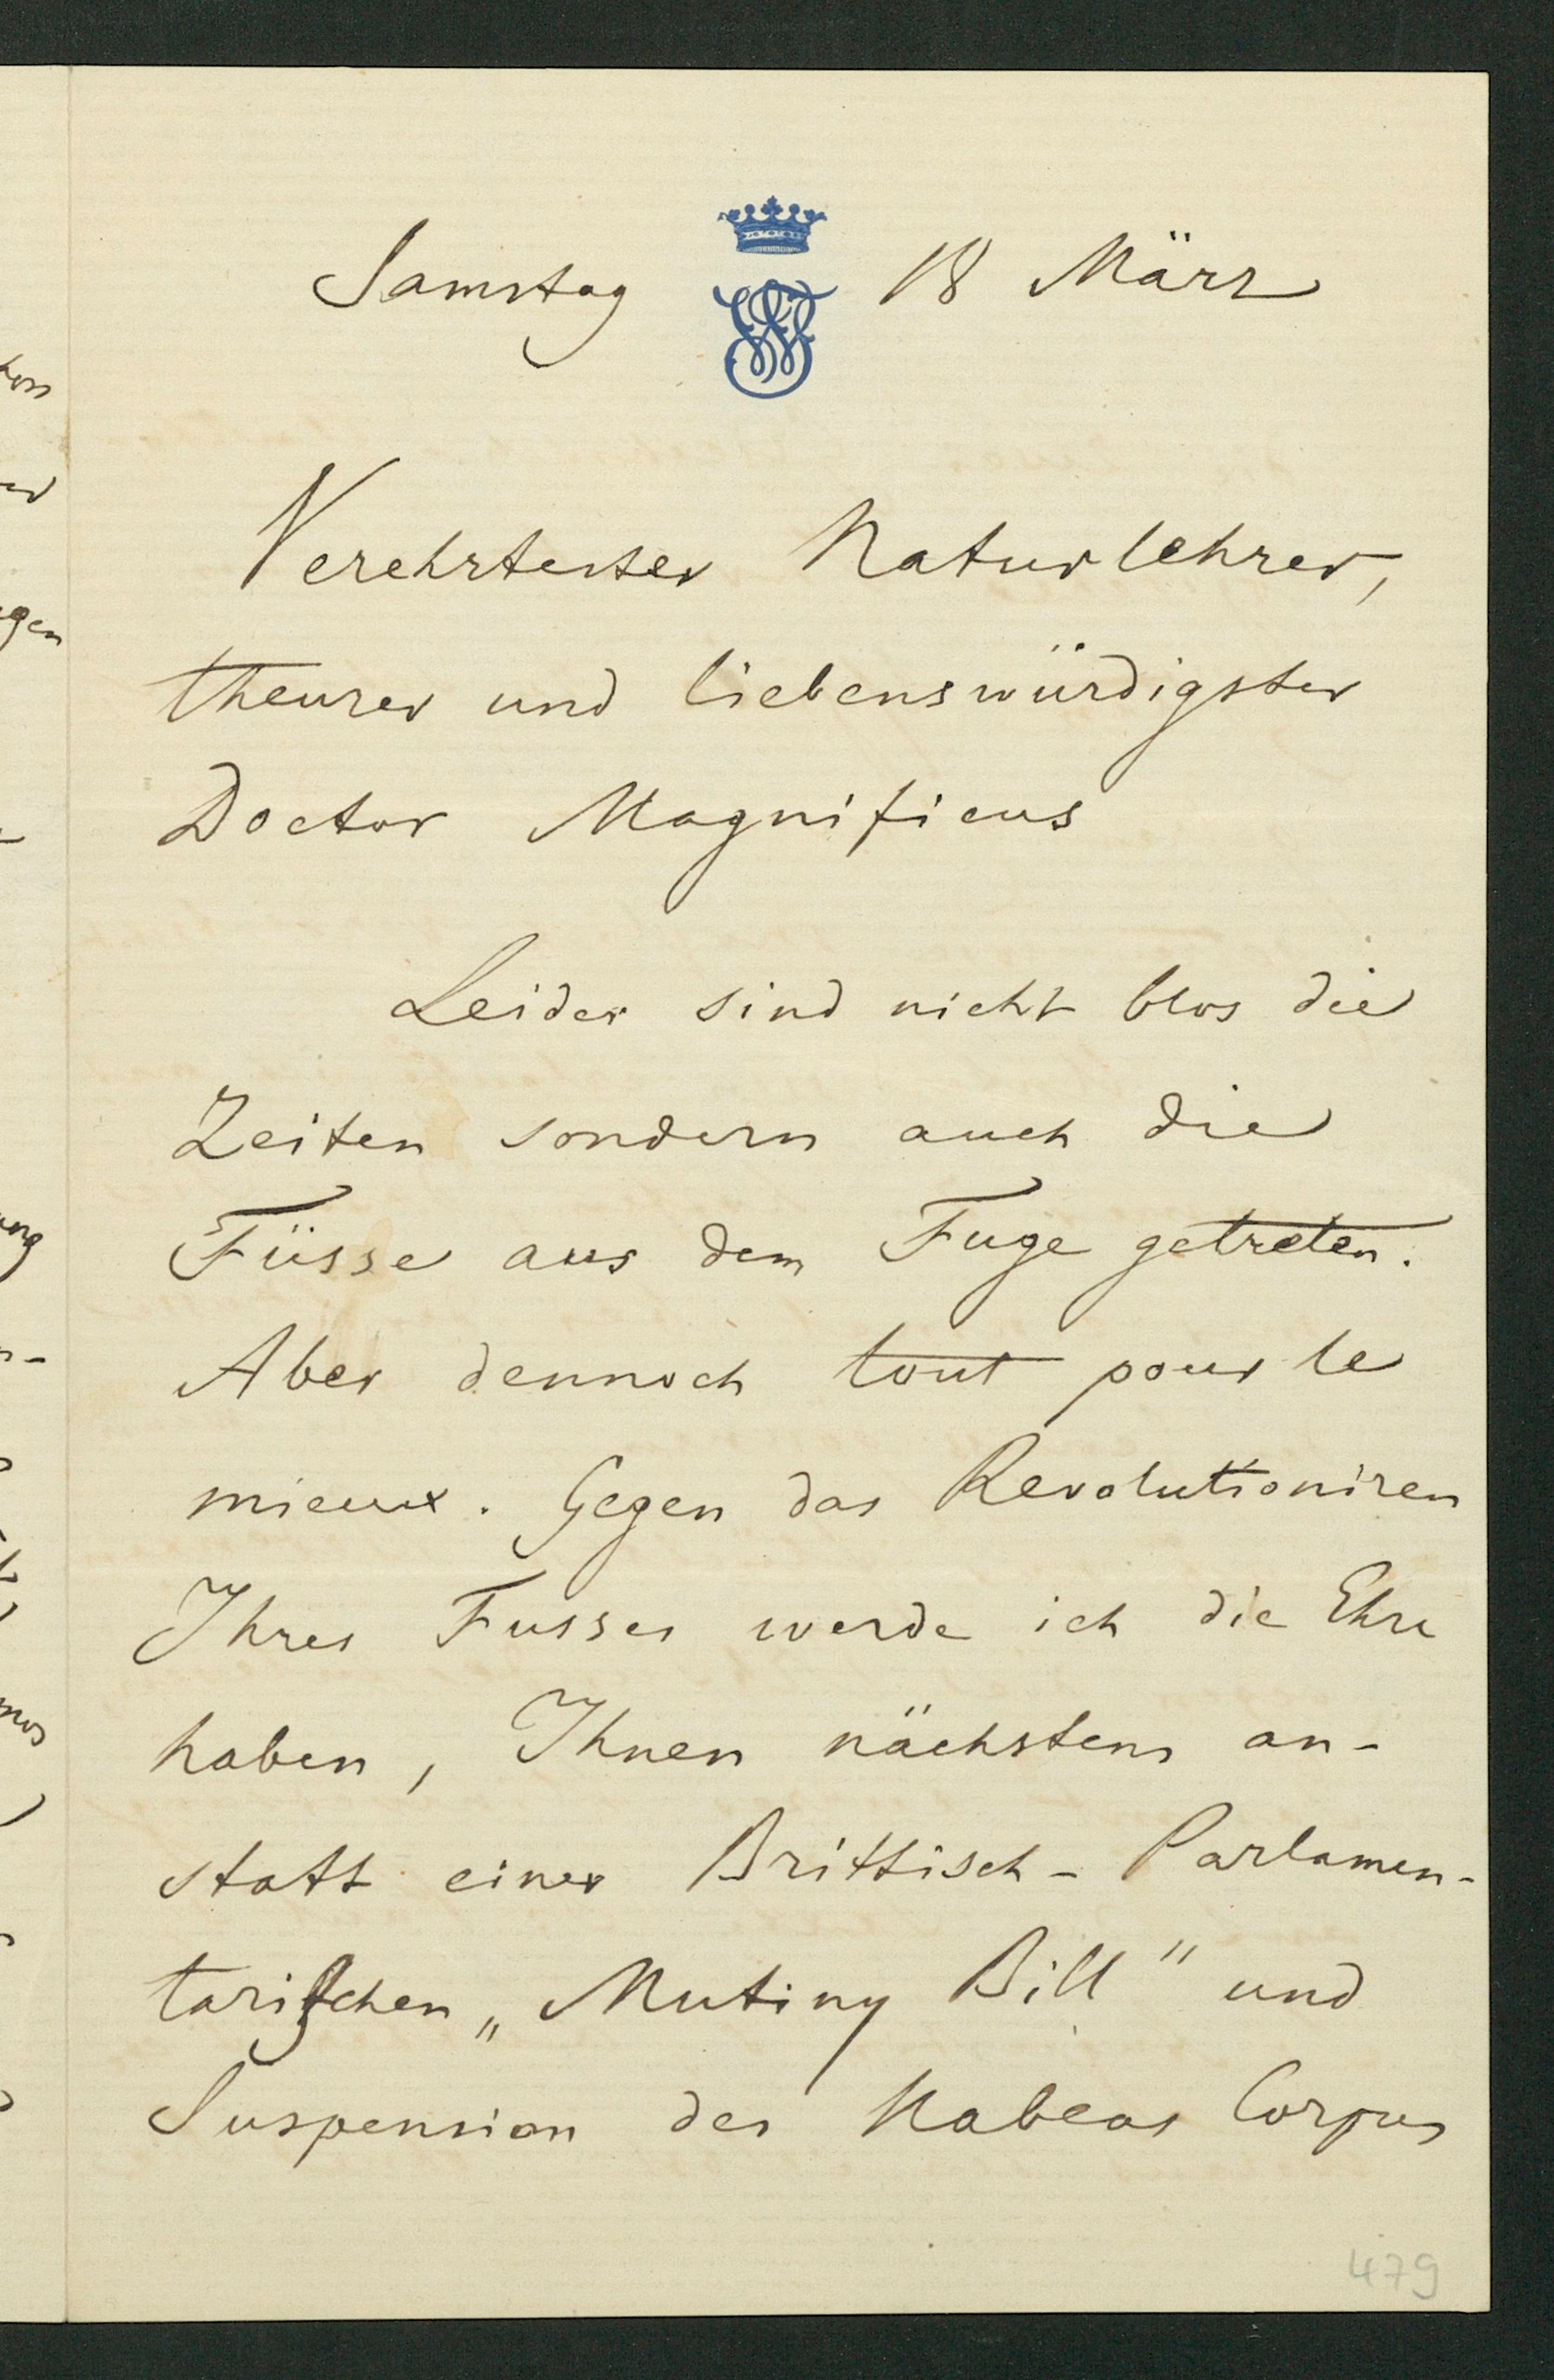 Samstag 18 März
Verehrtester Naturlehrer,
theurer und liebenswürdigster
Doctor Magnificus
Leider sind nicht blos die
Zeiten sondern auch die
Füsse aus dem Fuge getreten.
Aber dennoch tout pour le
mieux. Gegen das Revolutioniren
Ihres Fusses werde ich die Ehre
haben, Ihnen nächstens an-
statt einer Brittisch-Parlamen-
tarischen „Mutiny Bill" und
Suspension des Habeas Corpus
479